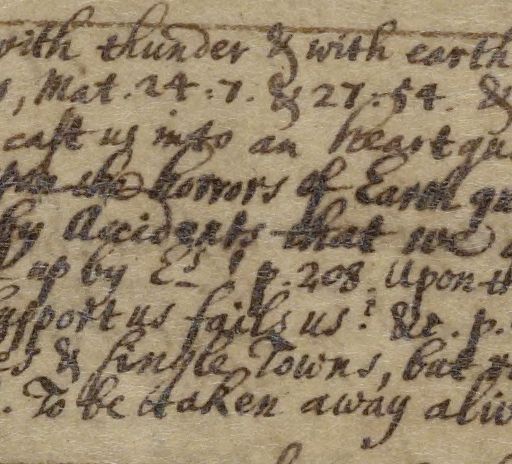 with thunder & with earth
, Mat. 24:7. & 27.54. &
cast us into an heartqu
the horrors of Earthqu
by Accidents that we
up by Es! p. 208. Upon th
support us fails us? &c. p.
& single Towns, but
. To be taken away aliv